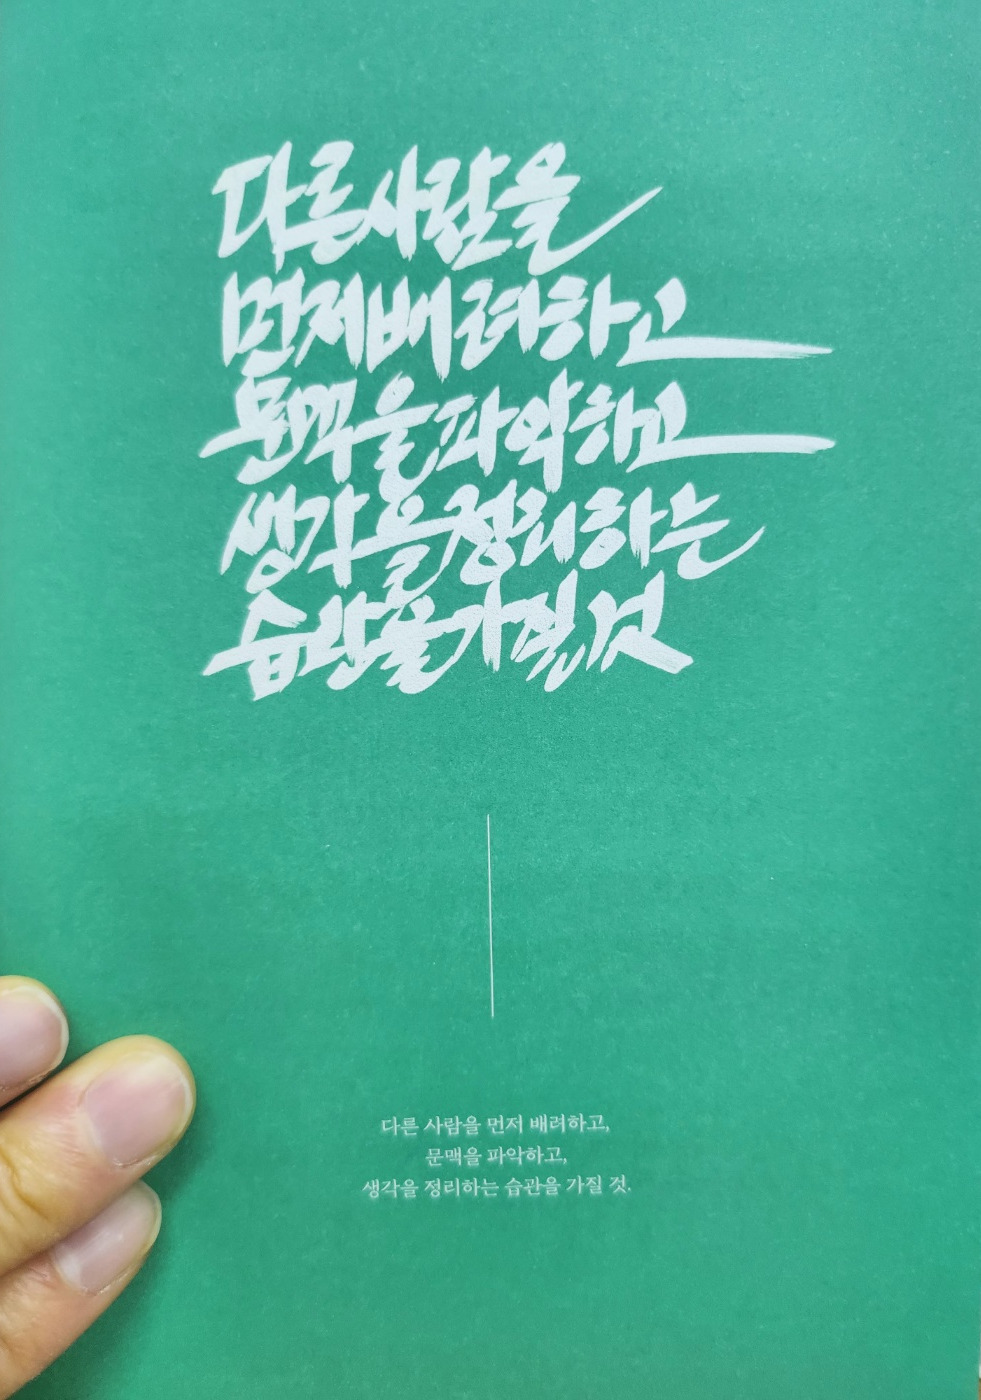 다른 사람을
먼저 배려하고
문맥을 파악하고
생각을 정리하는
습관을 가질 것
다른 사람을 먼저 배려하고,
문맥을 파악하고,
생각을 정리하는 습관을 가질 것.